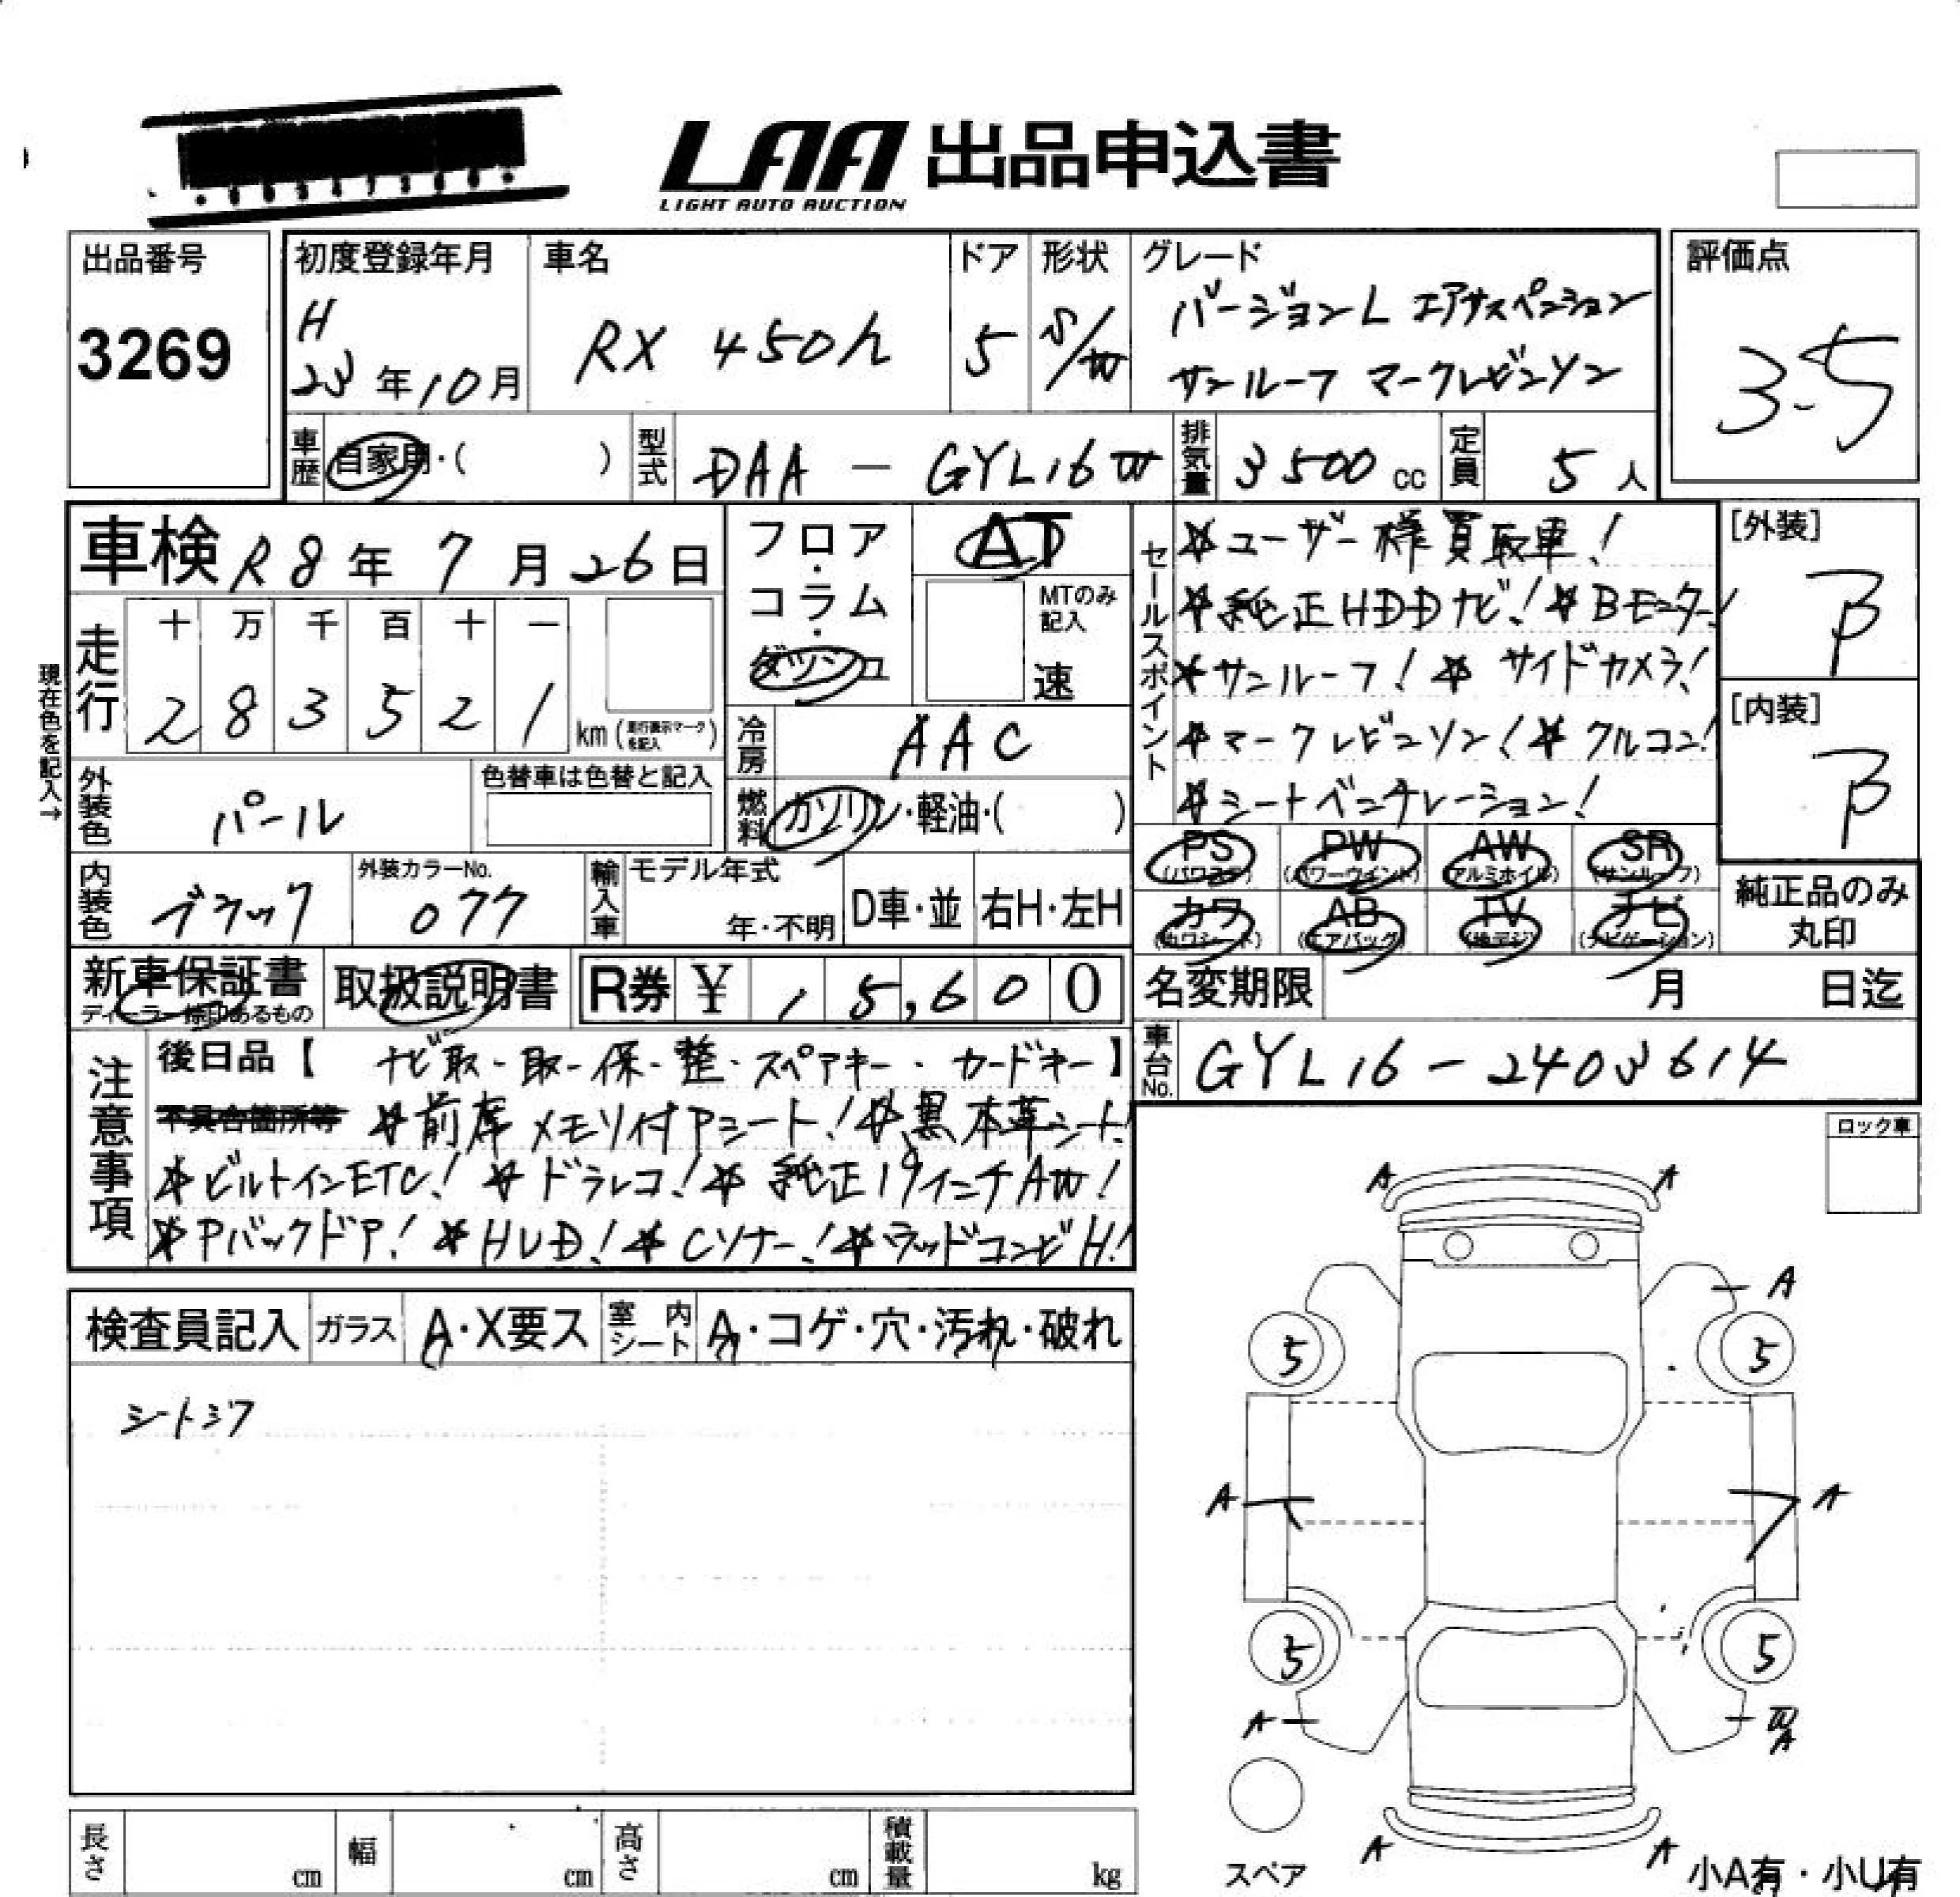 LAA 出品申込書
LIGHT AUTO AUCTION
出品番号
3269
初度登録年月
H
23年10月
車名
RX 450h
ドア
5
形状
S/W
グレード
バージョンL エアサスペンション
サンルーフ マークレビンソン
評価点
3.5
車歴 自家用・( )
型式 DAA - GYL16W
排気量 3500 cc
定員 5人
車検 R8年 7月 26日
走行 十 万 千 百 十 一
2 8 3 5 2 1 km (走行表示マークを記入)
現在色を記入→
外装色 パール
色替車は色替と記入
内装色 ブラック
外装カラーNo.
077
フロア・コラム・ダッシュ
AT
MTのみ記入
速
冷房 AAC
燃料 ガソリン・軽油・( )
輸入車 モデル年式
年・不明
D車・並 右H・左H
セールスポイント
☆ユーザー様買取車!
☆純正HDDナビ!☆Bモニター!
☆サンルーフ!☆サイドカメラ!
☆マークレビンソン!☆クルコン!
☆シートベンチレーション!
[外装]
B
[内装]
B
PS (パワステ) PW (パワーウインド) AW (アルミホイル) SR (サンルーフ)
カワ (カワシート) AB (エアバッグ) TV (地デジ) ナビ (ナビゲーション)
純正品のみ
丸印
新車保証書
ディーラー捺印あるもの
取扱説明書
R券 ¥ 15,600
名変期限 月 日迄
車台No. GYL16-2403614
注意事項
後日品【 ナビ取・取・保・整・スペアキー・カードキー】
不具合箇所等 ☆前席メモリ付Pシート!☆黒本革シート!
☆ビルトインETC!☆ドラレコ!☆純正19インチAW!
☆Pバックドア!☆HUD!☆Cソナー!☆ウッドコンビH!
ロック車
検査員記入 ガラス A・X要ス 室内シート A・コゲ・穴・汚れ・破れ
シートシワ
A A
A
5 5
A A
5 5
A WA
A A
スペア
小A有・小U有
長さ cm 幅 cm 高さ cm 積載量 kg